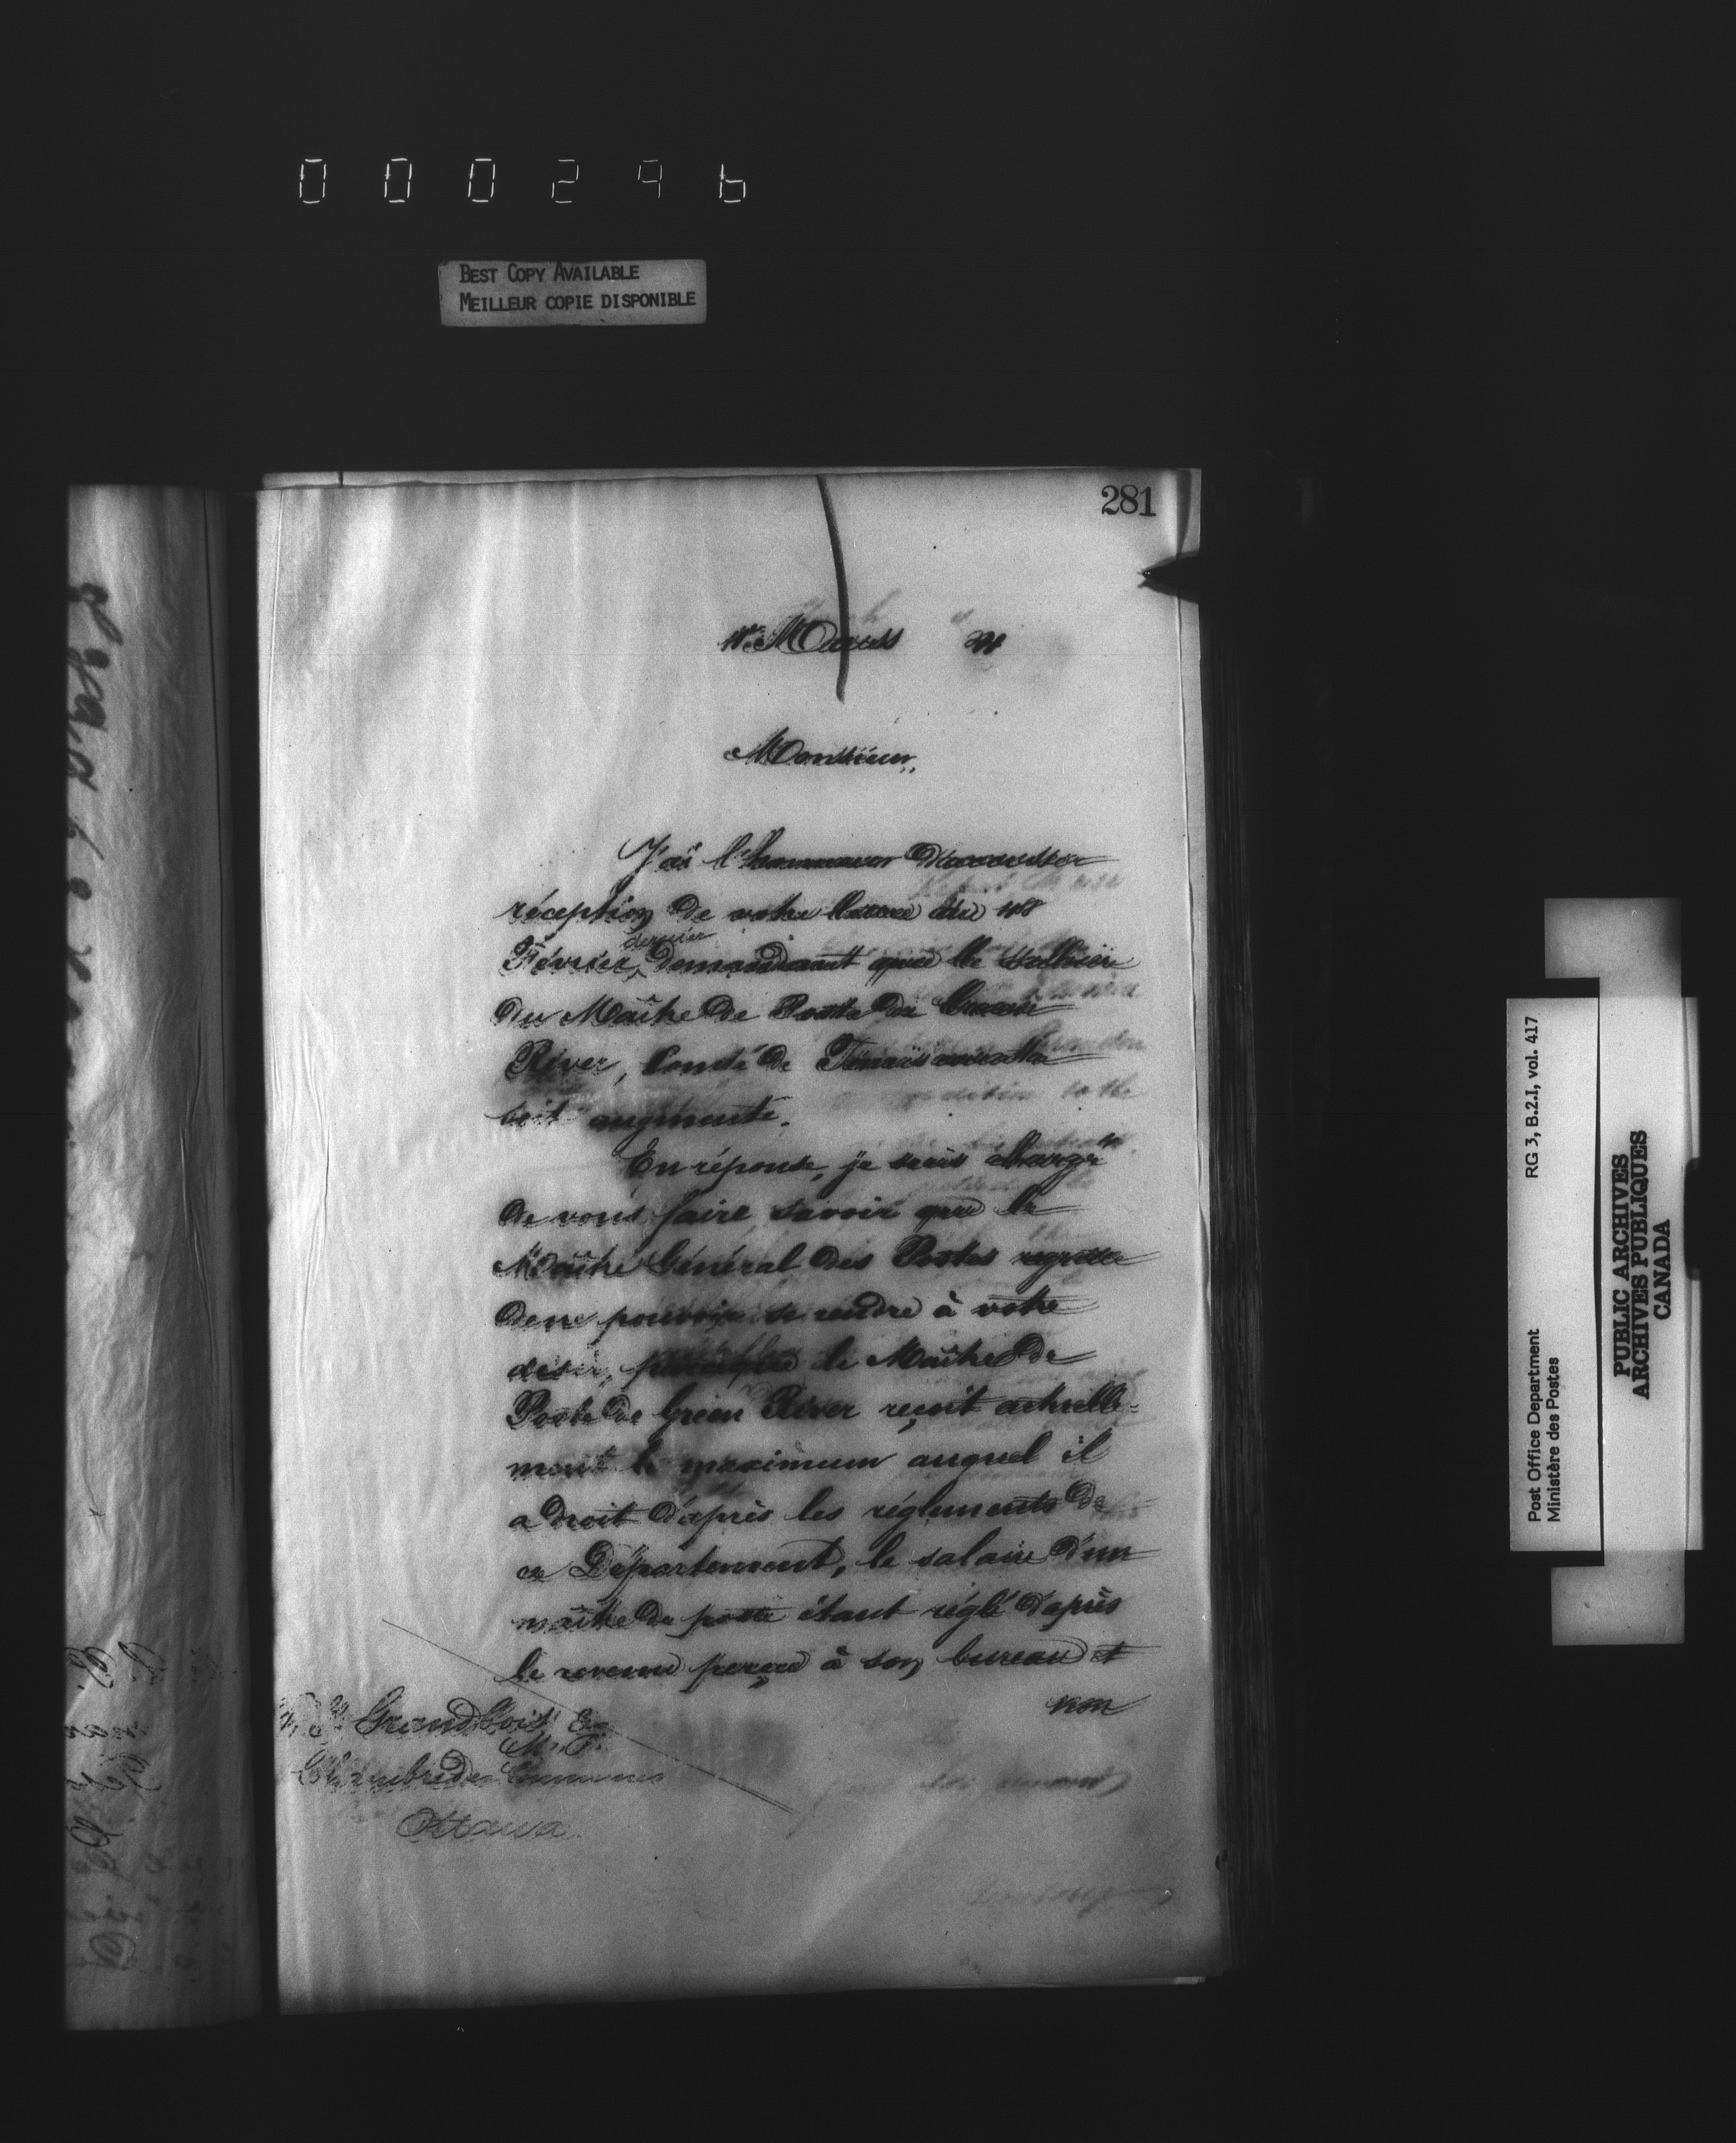 000296
BEST COPY AVAILABLE
MEILLEUR COPIE DISPONIBLE
281
Mars
Monsieur,
J'ai l'honneur d'accuser
réception de votre lettre du
Février, dernier demandant que le salaire
du Maître de Poste de Green
River, Comté de Témiscouata
soit augmenté.
En réponse, je suis chargé
de vous faire savoir que le
Maître Général des Postes regrette
de ne pouvoir se rendre à votre
désir, puisque le Maître de
Poste de Green River reçoit actuelle=
ment le maximum auquel il
a droit d'après les réglements de
ce Département, le salaire d'un
maître de poste étant réglé d'après
le revenu perçu à son bureau et
non
Grandbois E
M.P.
Chambre des Communes
Ottawa
Post Office Department
Ministère des Postes
RG 3, B.2.I, vol. 417
PUBLIC ARCHIVES
ARCHIVES PUBLIQUES
CANADA